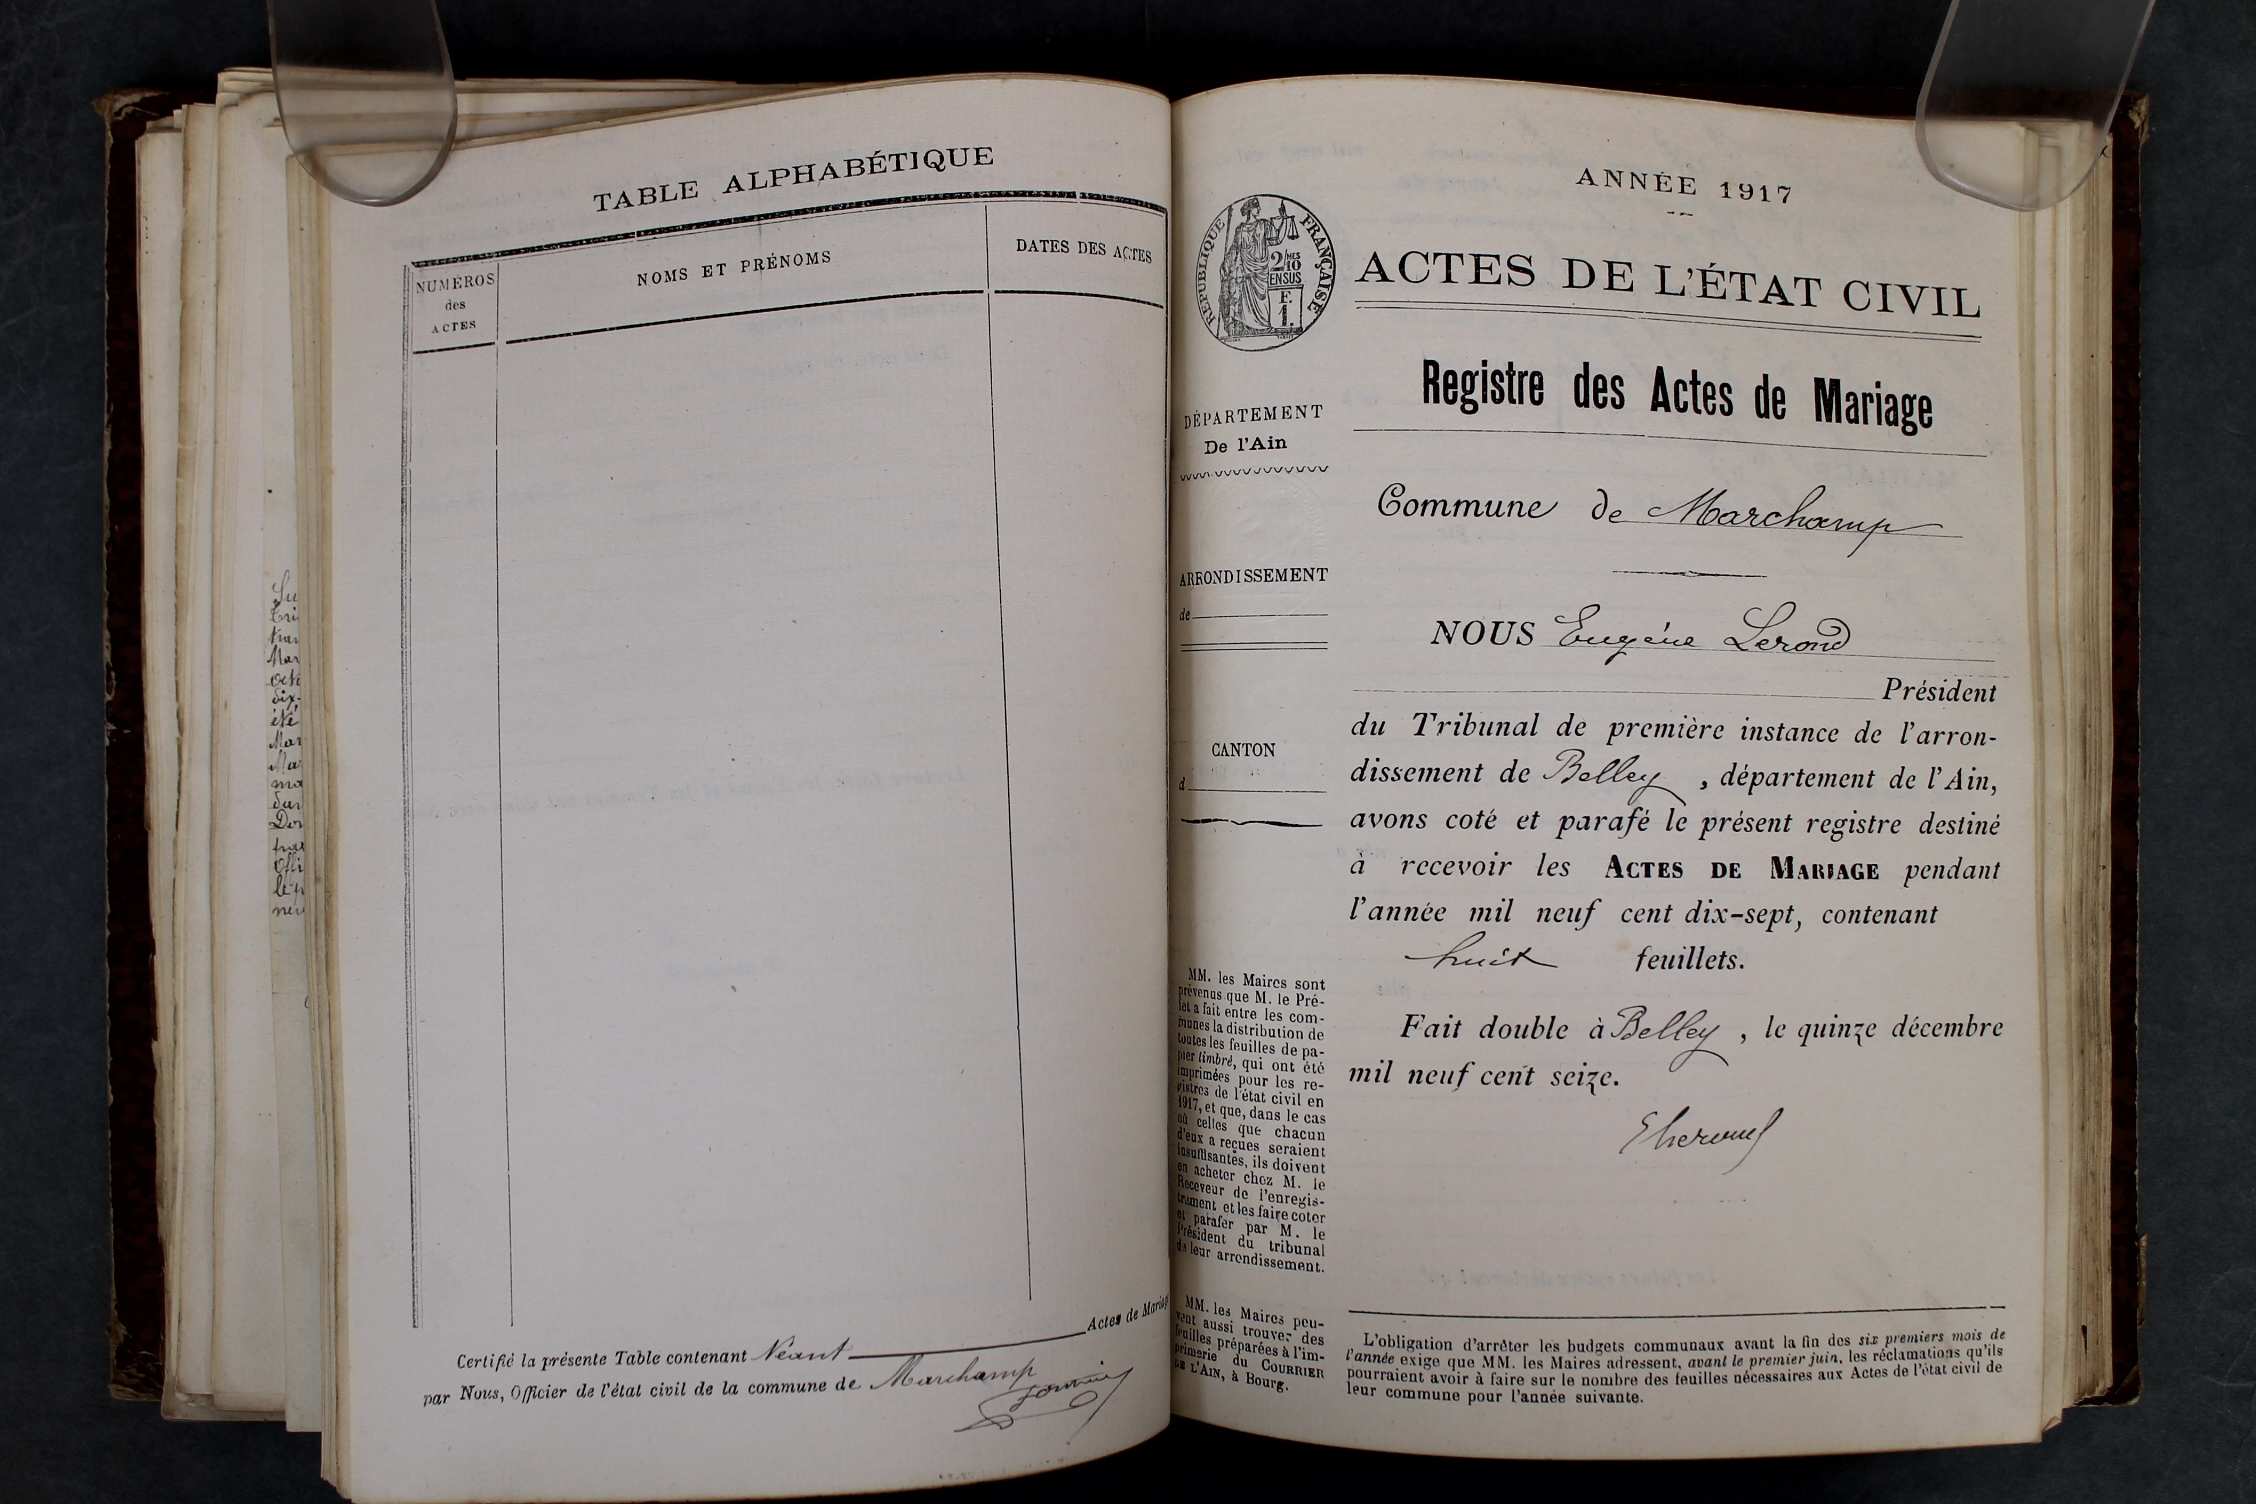 TABLE ALPHABÉTIQUE
NUMÉROS
des
ACTES
NOMS ET PRÉNOMS
DATES DES ACTES
Certifié la présente Table contenant Néant Actes de Mariage
par Nous, Officier de l'état civil de la commune de Marchamp
ANNÉE 1917
RÉPUBLIQUE FRANÇAISE
2/10
MES
EN SUS
F.
1.
ACTES DE L'ÉTAT CIVIL
Registre des Actes de Mariage
DÉPARTEMENT
De l'Ain
ARRONDISSEMENT
de
CANTON
d
MM. les Maires sont
prévenus que M. le Pré-
fet a fait entre les com-
munes la distribution de
toutes les feuilles de pa-
pier timbré, qui ont été
imprimées pour les re-
gistres de l'état civil en
1917, et que, dans le cas
où celles que chacun
d'eux a reçues seraient
insuffisantes, ils doivent
en acheter chez M. le
Receveur de l'enregis-
trement et les faire coter
et parafer par M. le
Président du tribunal
de leur arrondissement.
MM. les Maires peu-
vent aussi trouver des
feuilles préparées à l'im-
primerie du COURRIER
DE L'AIN, à Bourg.
Commune de Marchamp
NOUS Eugène Lerond
Président
du Tribunal de première instance de l'arron-
dissement de Belley, département de l'Ain,
avons coté et parafé le présent registre destiné
à recevoir les ACTES DE MARIAGE pendant
l'année mil neuf cent dix-sept, contenant
huit feuillets.
Fait double à Belley, le quinze décembre
mil neuf cent seize.
L'obligation d'arrêter les budgets communaux avant la fin des six premiers mois de
l'année exige que MM. les Maires adressent, avant le premier juin, les réclamations qu'ils
pourraient avoir à faire sur le nombre des feuilles nécessaires aux Actes de l'état civil de
leur commune pour l'année suivante.